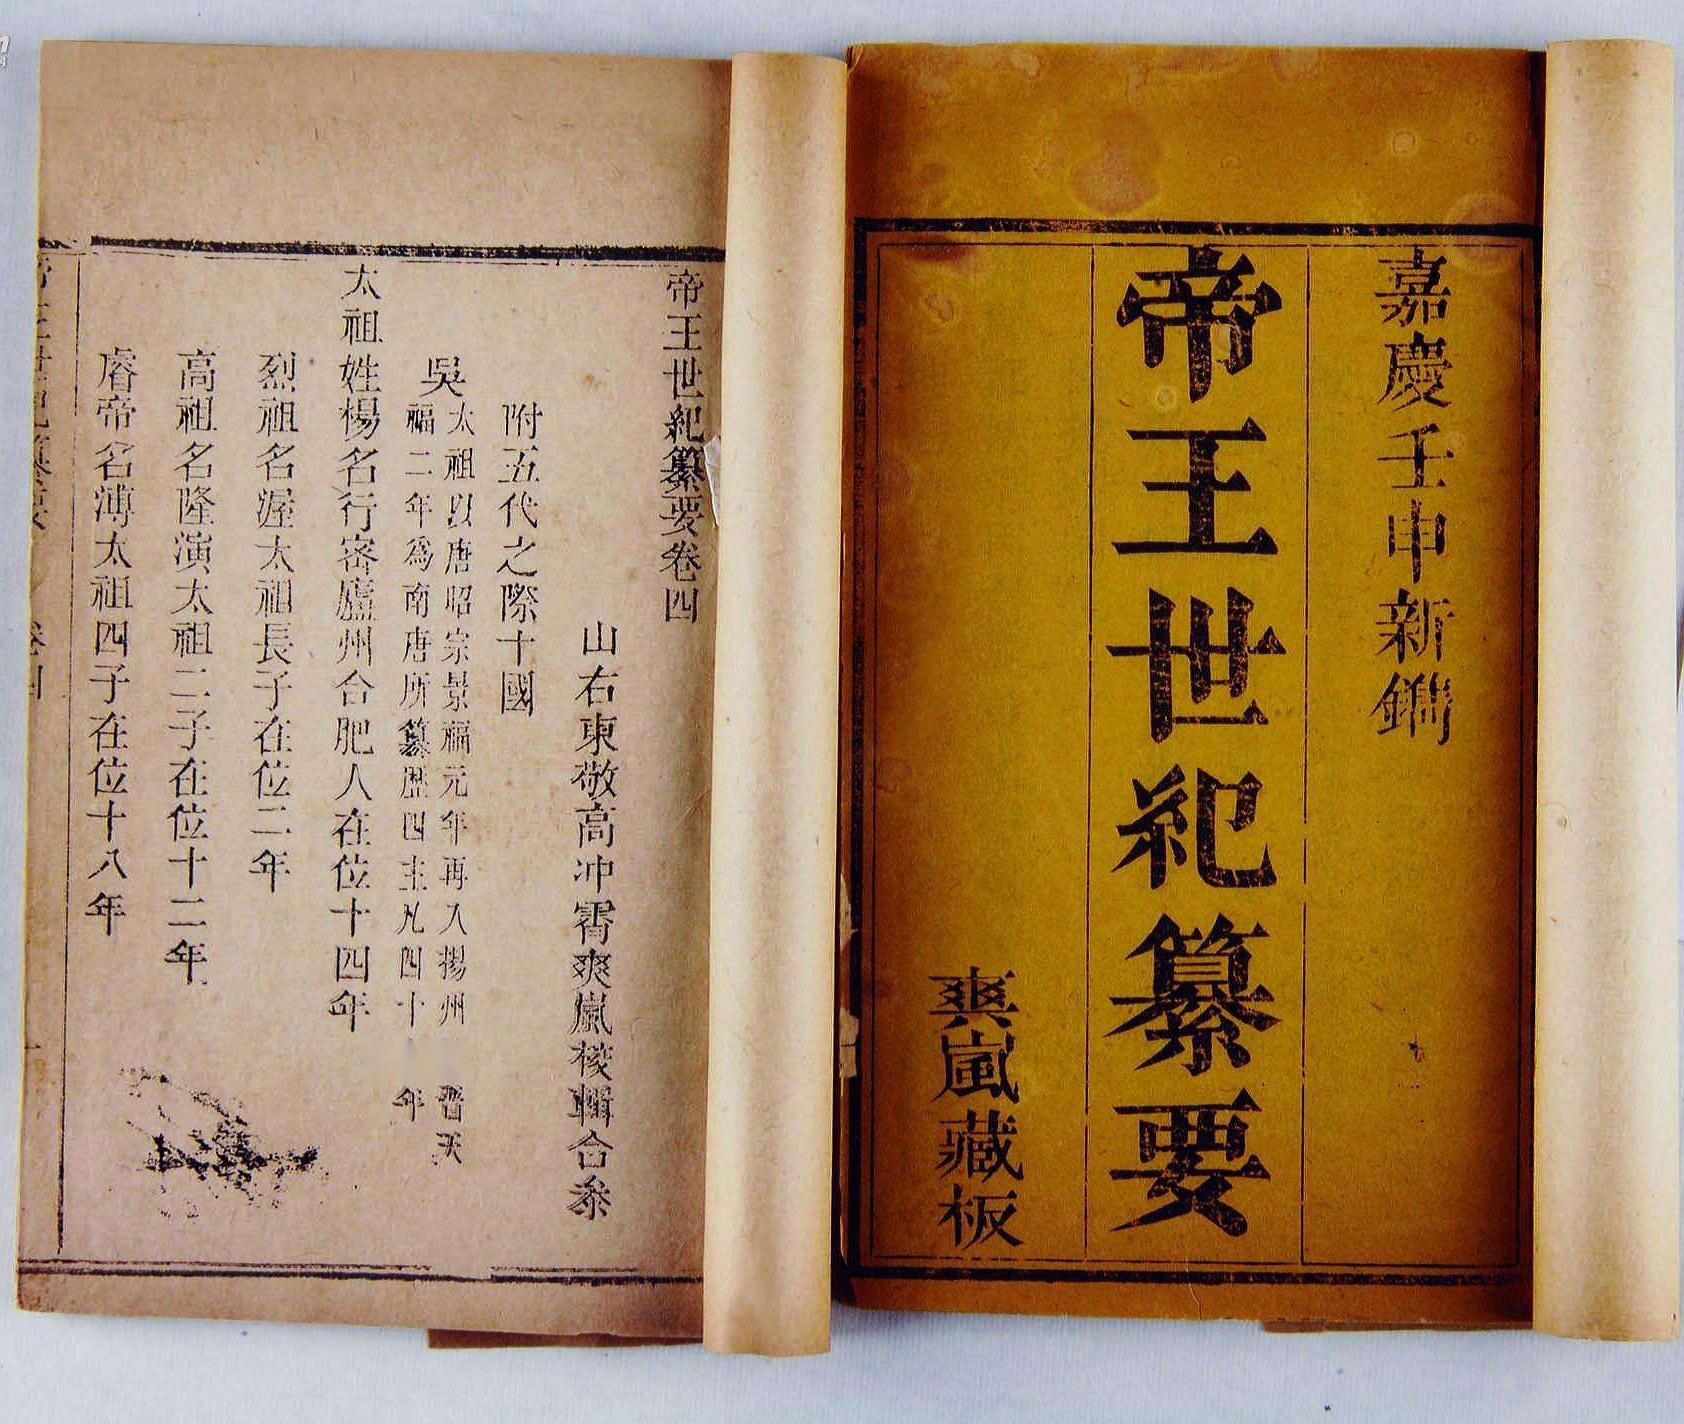 嘉慶壬申新鐫
帝王世紀纂要
爽嵐藏板
帝王世紀纂要卷四
山右東敬高冲霄爽嵐棱輯合叅
附五代之際十國
吳
太祖以唐昭宗景福元年再入揚州晋天
福二年為南唐所篡歷四主凡四十年
太祖姓楊名行密廬州合肥人在位十四年
烈祖名渥太祖長子在位二年
高祖名隆演太祖二子在位十二年
睿帝名溥太祖四子在位十八年